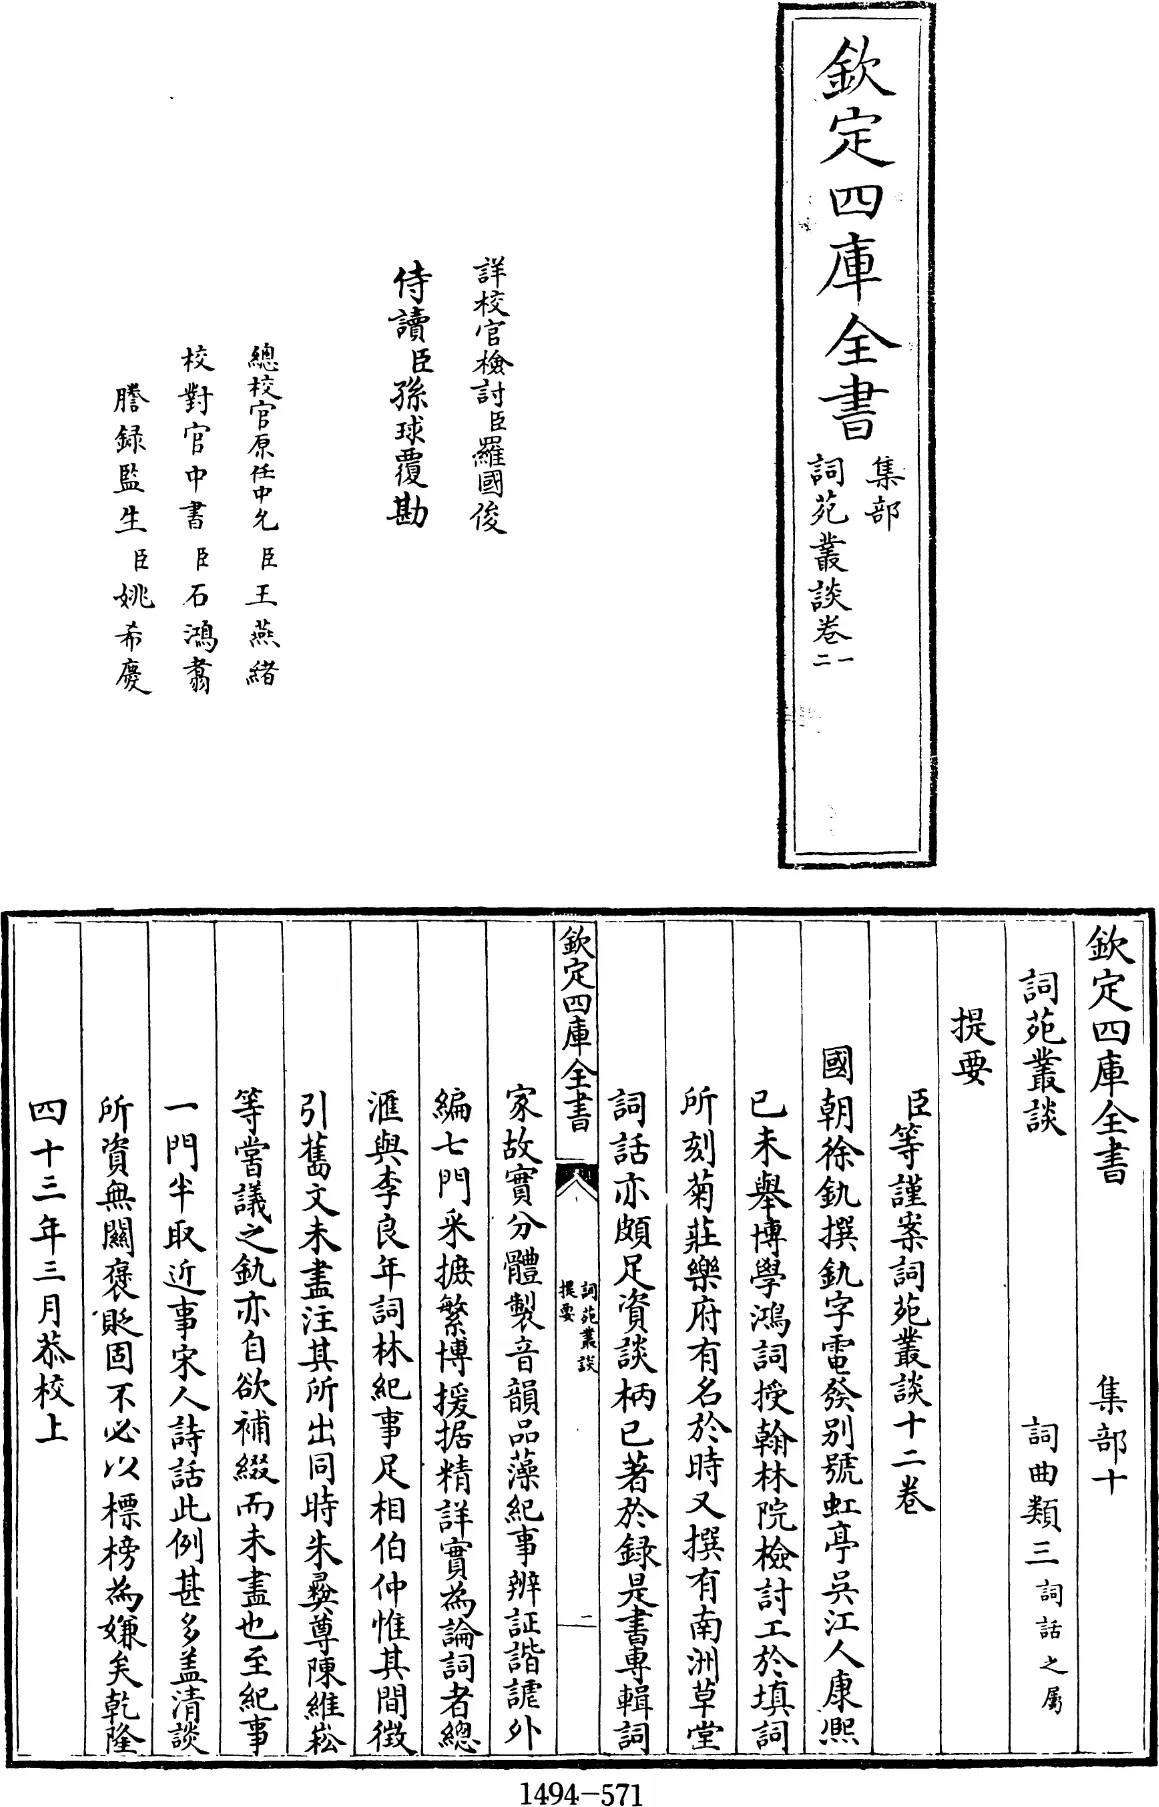 欽定四庫全書
集部
詞苑叢談卷一
二
詳校官檢討臣羅國俊
侍讀臣孫球覆勘
總校官原任中允臣王燕緒
校對官中書臣石鴻翥
謄録監生臣姚希慶
欽定四庫全書 集部十
詞苑叢談 詞曲類三詞話之屬
提要
臣等謹案詞苑叢談十二卷
國朝徐釚撰釚字電發别號虹亭吳江人康熙
已未舉博學鴻詞授翰林院檢討工於填詞
所刻菊莊樂府有名於時又撰有南洲草堂
詞話亦頗足資談柄已著於録是書專輯詞
欽定四庫全書
詞苑叢談
提要
二
家故實分體製音韻品藻紀事辨証諧謔外
編七門采摭繁博援据精詳實為論詞者總
滙與李良年詞林紀事足相伯仲惟其間徴
引舊文未盡注其所出同時朱彛尊陳維崧
等嘗議之釚亦自欲補綴而未盡也至紀事
一門半取近事宋人詩話此例甚多盖清談
所資無關褒貶固不必以標榜為嫌矣乾隆
四十三年三月恭校上
1494-571